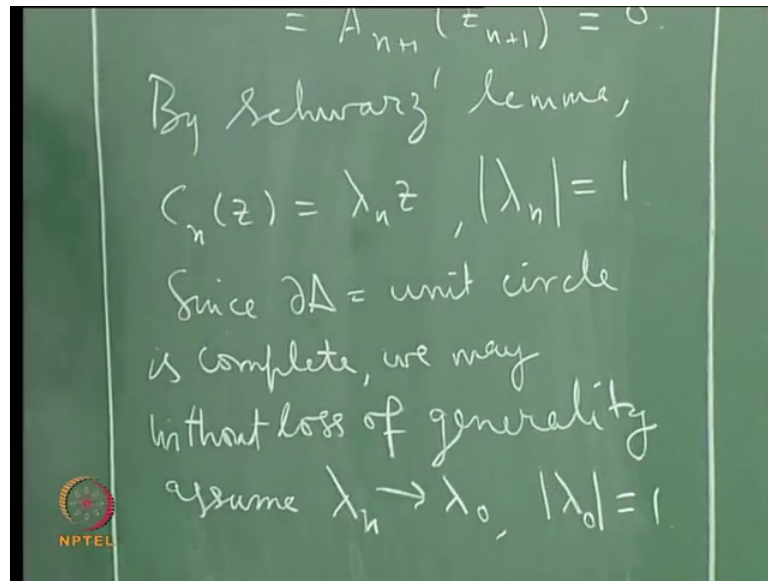 = A_{n+1} (z_{n+1}) = 0.
By Schwarz' lemma,
C_n(z) = λ_n z , |λ_n| = 1
Since ∂Δ = unit circle
is complete, we may
without loss of generality
assume λ_n → λ_0, |λ_0| = 1.
NPTEL